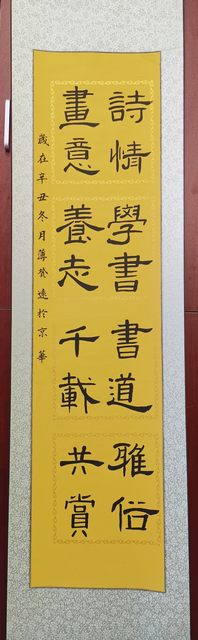 詩情學書書道雅俗
畫意養志千載共賞
歲在辛丑冬月薄贊遠於京華